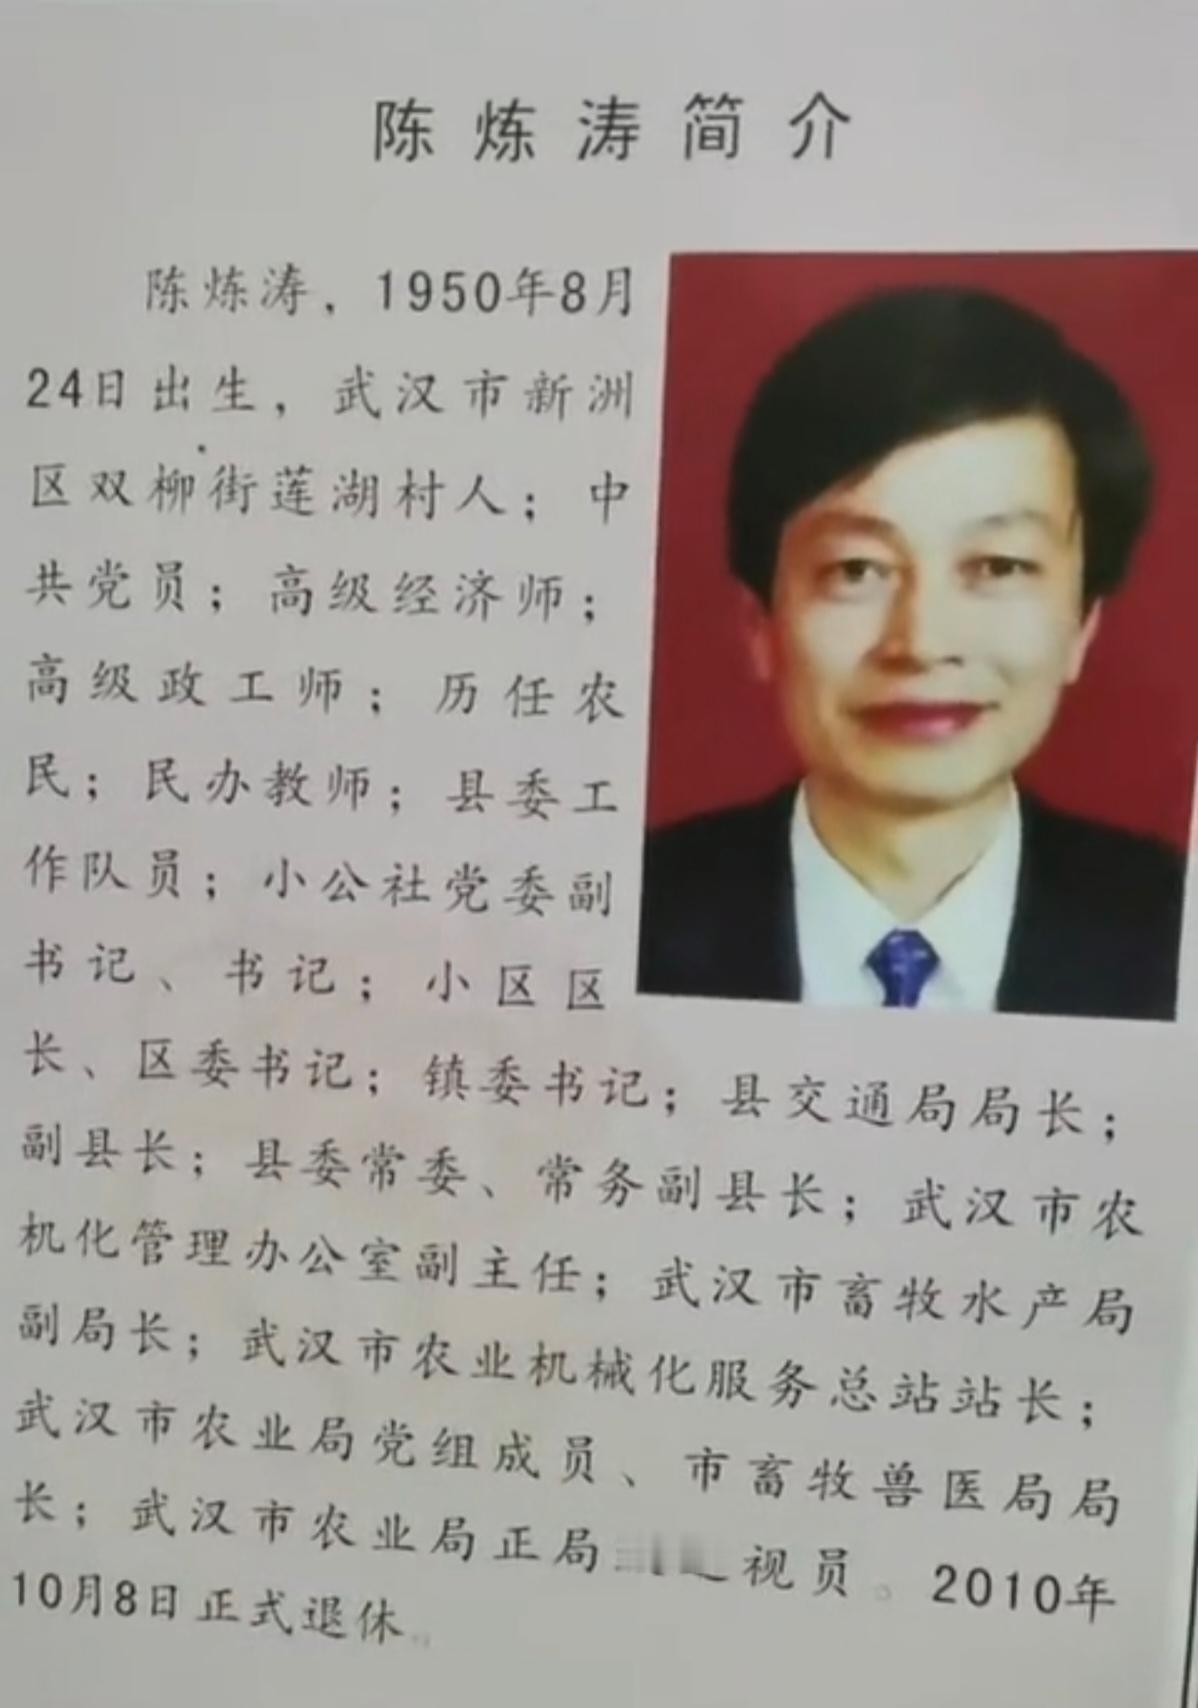 陈炼涛简介
陈炼涛，1950年8月
24日出生，武汉市新洲
区双柳街莲湖村人；中
共党员；高级经济师；
高级政工师；历任农
民；民办教师；县委工
作队员；小公社党委副
书记、书记；小区区
长、区委书记；镇委书记；县交通局局长；
副县长；县委常委、常务副县长；武汉市农
机化管理办公室副主任；武汉市畜牧水产局
副局长；武汉市农业机械化服务总站站长；
武汉市农业局党组成员、市畜牧兽医局局
长；武汉市农业局正局视员。2010年
10月8日正式退休。